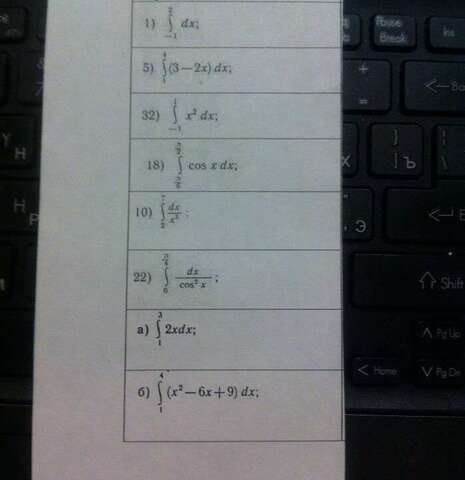 1) ∫₋₁² dx;
5) ∫₁⁴ (3—2x) dx;
32) ∫₋₁¹ x² dx;
18) ∫ cos x dx;
10) ∫₂ dx/x³ ;
22) ∫₀ dx/cos² x ;
a) ∫₁³ 2xdx;
б) ∫₁⁴ (x²—6x+9) dx;
Pause
Break
Ins
+
=
Ba
Н
Х
}
]
Ъ
Э
Shift
Pg Up
Home
Pg Dn